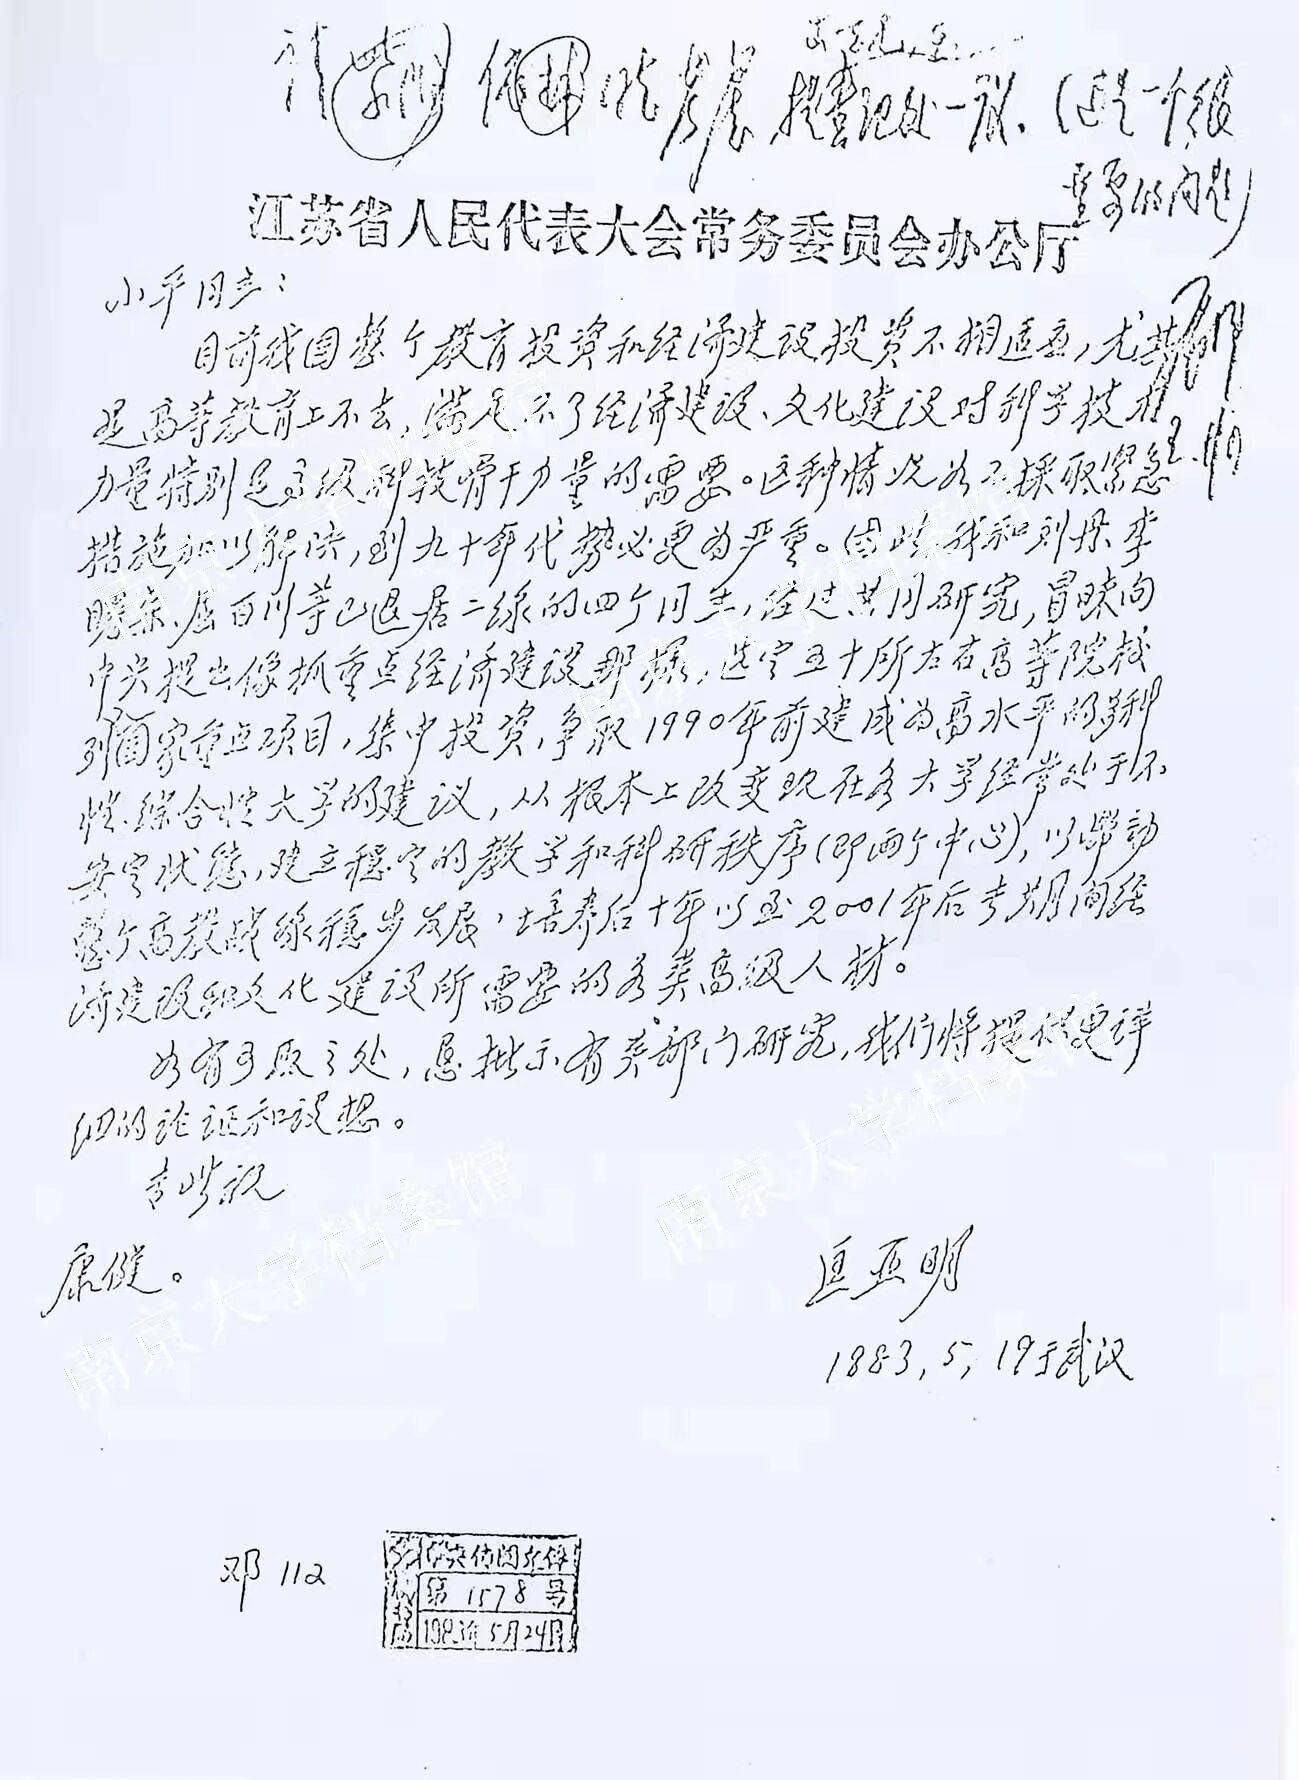 请紫阳、依林、昉、启立
提书记处一议。（这是一个很
重要的问题）
江苏省人民代表大会常务委员会办公厅
小平同志：
目前我国整个教育投资和经济建设投资不相适应，尤其
是高等教育上不去，满足不了经济建设、文化建设对科学技术
力量特别是高级科技骨干力量的需要。这种情况如不採取紧急
措施加以解决，到九十年代势必更为严重。因此，我和刘丹、李
曙森、屈伯川等已退居二线的四个同志，经过共同研究，冒昧向
中央提出像抓重点经济建设那样，选定五十所左右高等院校
列国家重点项目，集中投资，争取1990年前建成为高水平的多科
性、综合性大学的建议，从根本上改变现在各大学经常处于不
安定状态，建立稳定的教学和科研秩序（即两个中心），以带动
整个高教战线稳步发展，培养后十年以至2001年后长期间经
济建设和文化建设所需要的各类高级人材。
如有可取之处，恳批示有关部门研究，我们将提供更详
细的论证和设想。
专此祝
康健。
匡亚明
1983.5.19于武汉
邓112
中央传阅文件
第1578号
1983年5月24日
南京大学档案馆
南京大学档案馆
南京大学档案馆
南京大学档案馆